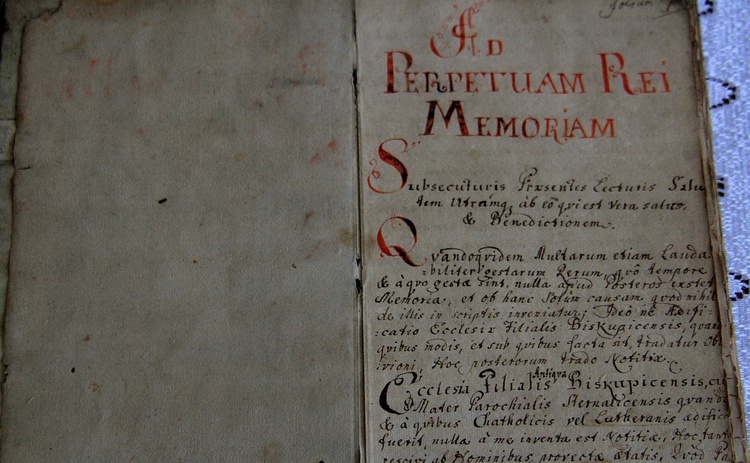 Ad
Perpetuam Rei
Memoriam
Subsecuturis Præsentes Lecturis Salu
tem Utramq; àb eô qui est vera salus,
& Benedictionem.
Qvandoqvidem Multarum etiam Lauda
=biliter gestarum Rerum, qvô tempore
& à qvo gestæ sint, nulla apud Posteros exstet
Memoria, et ob hanc Solùm causam qvod nihil
de illis in scriptis inveniatur; Ideò ne Ædifi-
=catio Ecclesiæ Filialis Biskupicensis, qvan
qvibus modis, et sub qvibus facta sit, tradatur Ob
livioni, Hoc posterorum trado Notitiæ.
Antiqva
Ecclesia Filialis Biskupicensis, cu
Mater Parochialis Sternalicensis qvand
& à qvibus Chatholicis vel Lutheranis ædifica
fuerit, nulla à me inventa est Notitia; Hoc tant
rescivi ab Hominibus provectæ ætatis, Qvod Pa